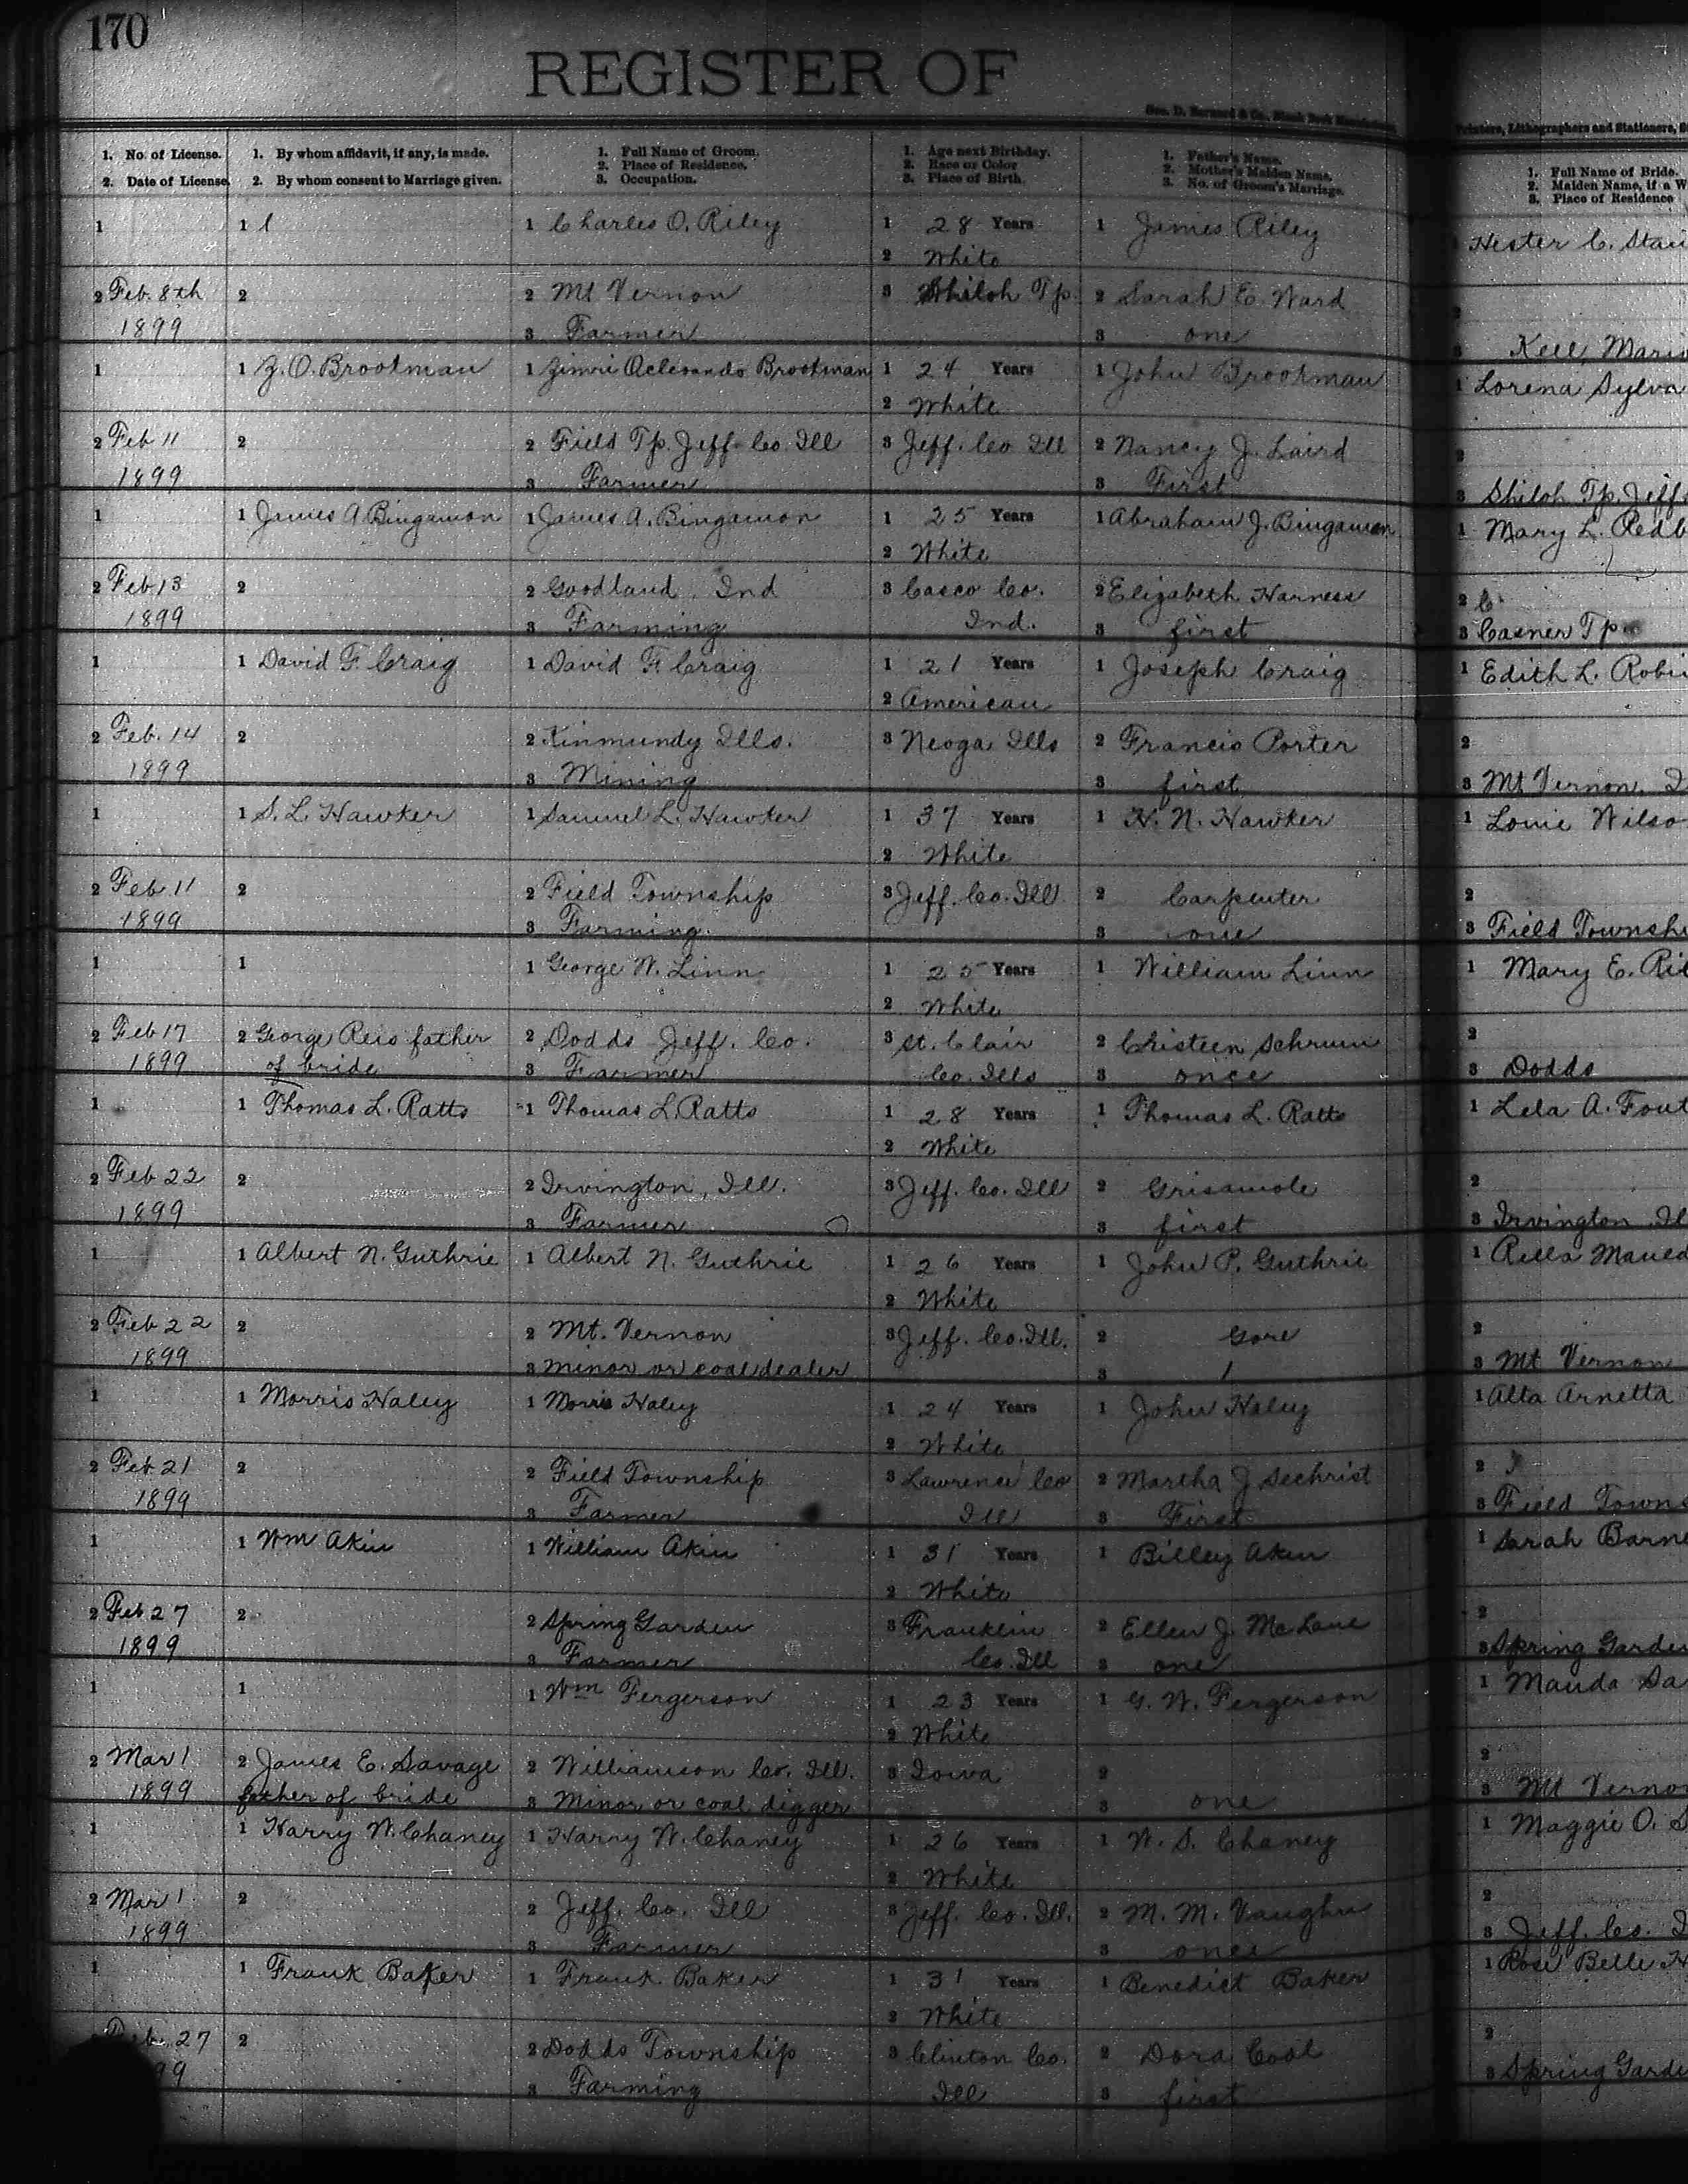 170
REGISTER OF
Geo. D. Barnard & Co., Blank Book
Printers, Lithographers and Stationers,
1. No. of License.
2. Date of License.
1. By whom affidavit, if any, is made.
2. By whom consent to Marriage given.
1. Full Name of Groom.
2. Place of Residence.
3. Occupation.
1. Age next Birthday.
2. Race or Color
3. Place of Birth
1. Father's Name.
2. Mother's Maiden Name.
3. No. of Groom's Marriage.
1. Full Name of Bride.
2. Maiden Name, if a W
3. Place of Residence
1 1 1 Charles O. Riley 1 28 Years 1 James Riley Hester C. Stai
2 White
2 Feb. 8th 2 2 Mt Vernon 3 Shiloh Tp. 2 Sarah E. Ward 2
1899 3 Farmer 3 one 3 Kell, Mario
1 1 Z. O. Brookman 1 Zimri Brookman 1 24 Years 1 John Brookman 1 Lorena Sylva
2 White
2 Feb 11 2 2 Field Tp. Jeff. Co. Ill 3 Jeff. Co Ill 2 Nancy J. Laird 2
1899 3 Farmer 3 First 3 Shiloh Tp. Jeff.
1 1 James A Bingamon 1 James A. Bingamon 1 25 Years 1 Abraham J. Bingamon 1 Mary L. Redb
2 White
2 Feb 13 2 2 Goodland, Ind 3 Casco Co. 2 Elizabeth Harness 2 C
1899 3 Farming Ind. 3 first 3 Casner Tp
1 1 David F. Craig 1 David F. Craig 1 21 Years 1 Joseph Craig 1 Edith L. Robi
2 American
2 Feb. 14 2 2 Kinmundy Ills. 3 Neoga Ills 2 Francis Porter 2
1899 3 Mining 3 first 3 Mt Vernon, I
1 1 S. L. Hawker 1 Samuel L. Hawker 1 37 Years 1 H. N. Hawker 1 Louie Wilso
2 White
2 Feb 11 2 2 Field Township 3 Jeff. Co. Ill 2 Carpenter 2
1899 3 Farming. 3 one 3 Field Townshi
1 1 1 George W. Linn 1 25 Years 1 William Linn 1 Mary E. Rei
2 White
2 Feb 17 2 George Reis father 2 Dodds Jeff. Co. 3 St. Clair 2 Christeen Schrum 2
1899 of bride 3 Farmer Co. Ills 3 once 3 Dodds
1 1 Thomas L. Ratts 1 Thomas L. Ratts 1 28 Years 1 Thomas L. Ratts 1 Lela A. Fout
2 White
2 Feb 22 2 2 Irvington, Ill. 3 Jeff. Co. Ill 2 Grisamole 2
1899 3 Farmer 3 first 3 Irvington Il
1 1 Albert N. Guthrie 1 Albert N. Guthrie 1 26 Years 1 John P. Guthrie 1 Rella Maued
2 White
2 Feb 22 2 2 Mt. Vernon 3 Jeff. Co. Ill. 2 Gore 2
1899 3 minor or coal dealer 3 1 3 Mt Vernon
1 1 Morris Haley 1 Morris Haley 1 24 Years 1 John Haley 1 Alta Arnetta
2 White
2 Feb 21 2 2 Field Township 3 Lawrence Co 2 Martha J Sechrist 2
1899 3 Farmer Ill 3 First 3 Field Towns
1 1 Wm Akin 1 William Akin 1 31 Years 1 Billey Akin 1 Sarah Barne
2 White
2 Feb 27 2 2 Spring Garden 3 Franklin 2 Ellen J. McLane 2
1899 3 Farmer Co. Ill 3 one 3 Spring Garde
1 1 1 Wm Fergerson 1 23 Years 1 G. W. Fergerson 1 Mauda Sa
2 White
2 Mar 1 2 James E. Savage 2 Williamson Co. Ill. 3 Iowa 2 2
1899 father of bride 3 Minor or coal digger 3 one 3 Mt Verno
1 1 Harry W. Chaney 1 Harry W. Chaney 1 26 Years 1 W. S. Chaney 1 Maggie O. S
2 White
2 Mar 1 2 2 Jeff. Co. Ill 3 Jeff. Co. Ill. 2 M. M. Vaughn 2
1899 3 Farmer 3 once 3 Jeff. Co. I
1 1 Frank Baker 1 Frank Baker 1 31 Years 1 Benedict Baker 1 Rose Belle H
2 White
Feb. 27 2 2 Dodds Township 3 Clinton Co. 2 Dora Cool 2
99 3 Farming Ill 3 first 3 Spring Garde